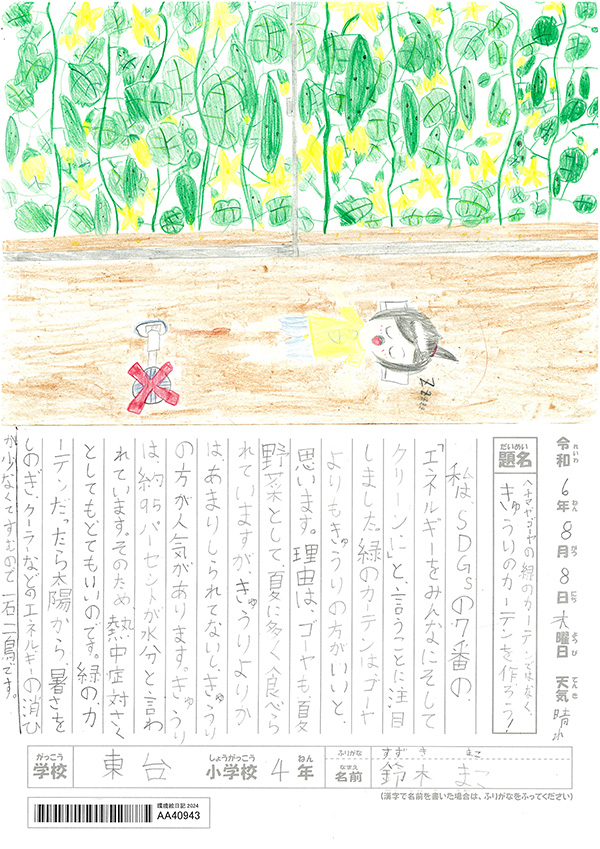 令和6年8月8日木曜日 天気 晴れ
題名
ヘチマやゴーヤの緑のカーテンではなく、
きゅうりのカーテンを作ろう!
私は、SDGsの7番の、
「エネルギーをみんなにそして
クリーンに」と、言うことに注目
しました。緑のカーテンはゴーヤ
よりもきゅうりの方がいいと、
思います。理由は、ゴーヤも夏
野菜として、夏に多く食べら
れていますが、きゅうりよりか
はあまりしられてないし、きゅうり
の方が人気があります。きゅうり
は、約95パーセントが水分と言わ
れています。そのため熱中症対さく
としてもとてもいいのです。緑のカ
ーテンだったら太陽から、暑さを
しのぎ、クーラーなどのエネルギーの消ひ
が少なくてすむので一石二鳥です。
学校 東台 小学校 4年
ふりがな すずき まこ
名前 鈴木 まこ
(漢字で名前を書いた場合は、ふりがなをふってください)
環境絵日記 2024
AA40943